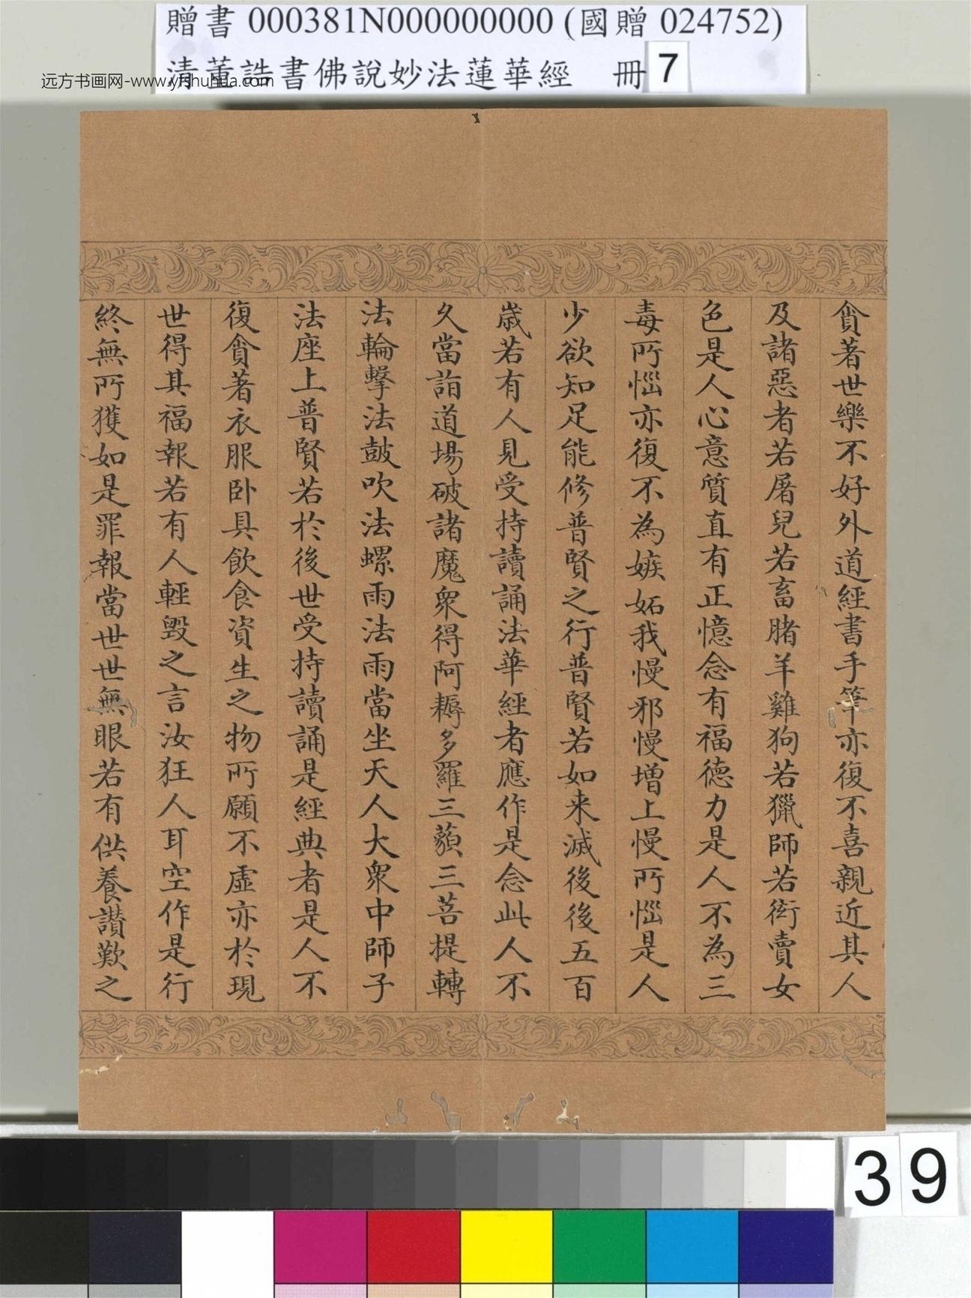 贈書 000381N000000000 (國贈 024752)
清董誥書佛說妙法蓮華經 冊 7
远方书画网-www.yfshuhua.com
貪著世樂不好外道經書手筆亦復不喜親近其人
及諸惡者若屠兒若畜腊羊雞狗若獵師若衒賣女
色是人心意質直有正憶念有福德力是人不為三
毒所惱亦復不為嫉妬我慢邪慢增上慢所惱是人
少欲知足能修普賢之行普賢若如来滅後後五百
歲若有人見受持讀誦法華經者應作是念此人不
久當詣道場破諸魔衆得阿耨多羅三藐三菩提轉
法輪擊法鼓吹法螺雨法雨當坐天人大衆中師子
法座上普賢若於後世受持讀誦是經典者是人不
復貪著衣服卧具飲食資生之物所願不虛亦於現
世得其福報若有人輕毀之言汝狂人耳空作是行
終無所獲如是罪報當世世無眼若有供養讃歎之
39